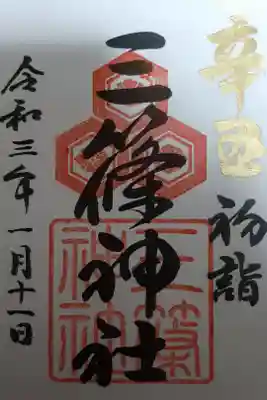 辛丑
初詣
三篠神社
三篠
神社
令和三年一月十一日